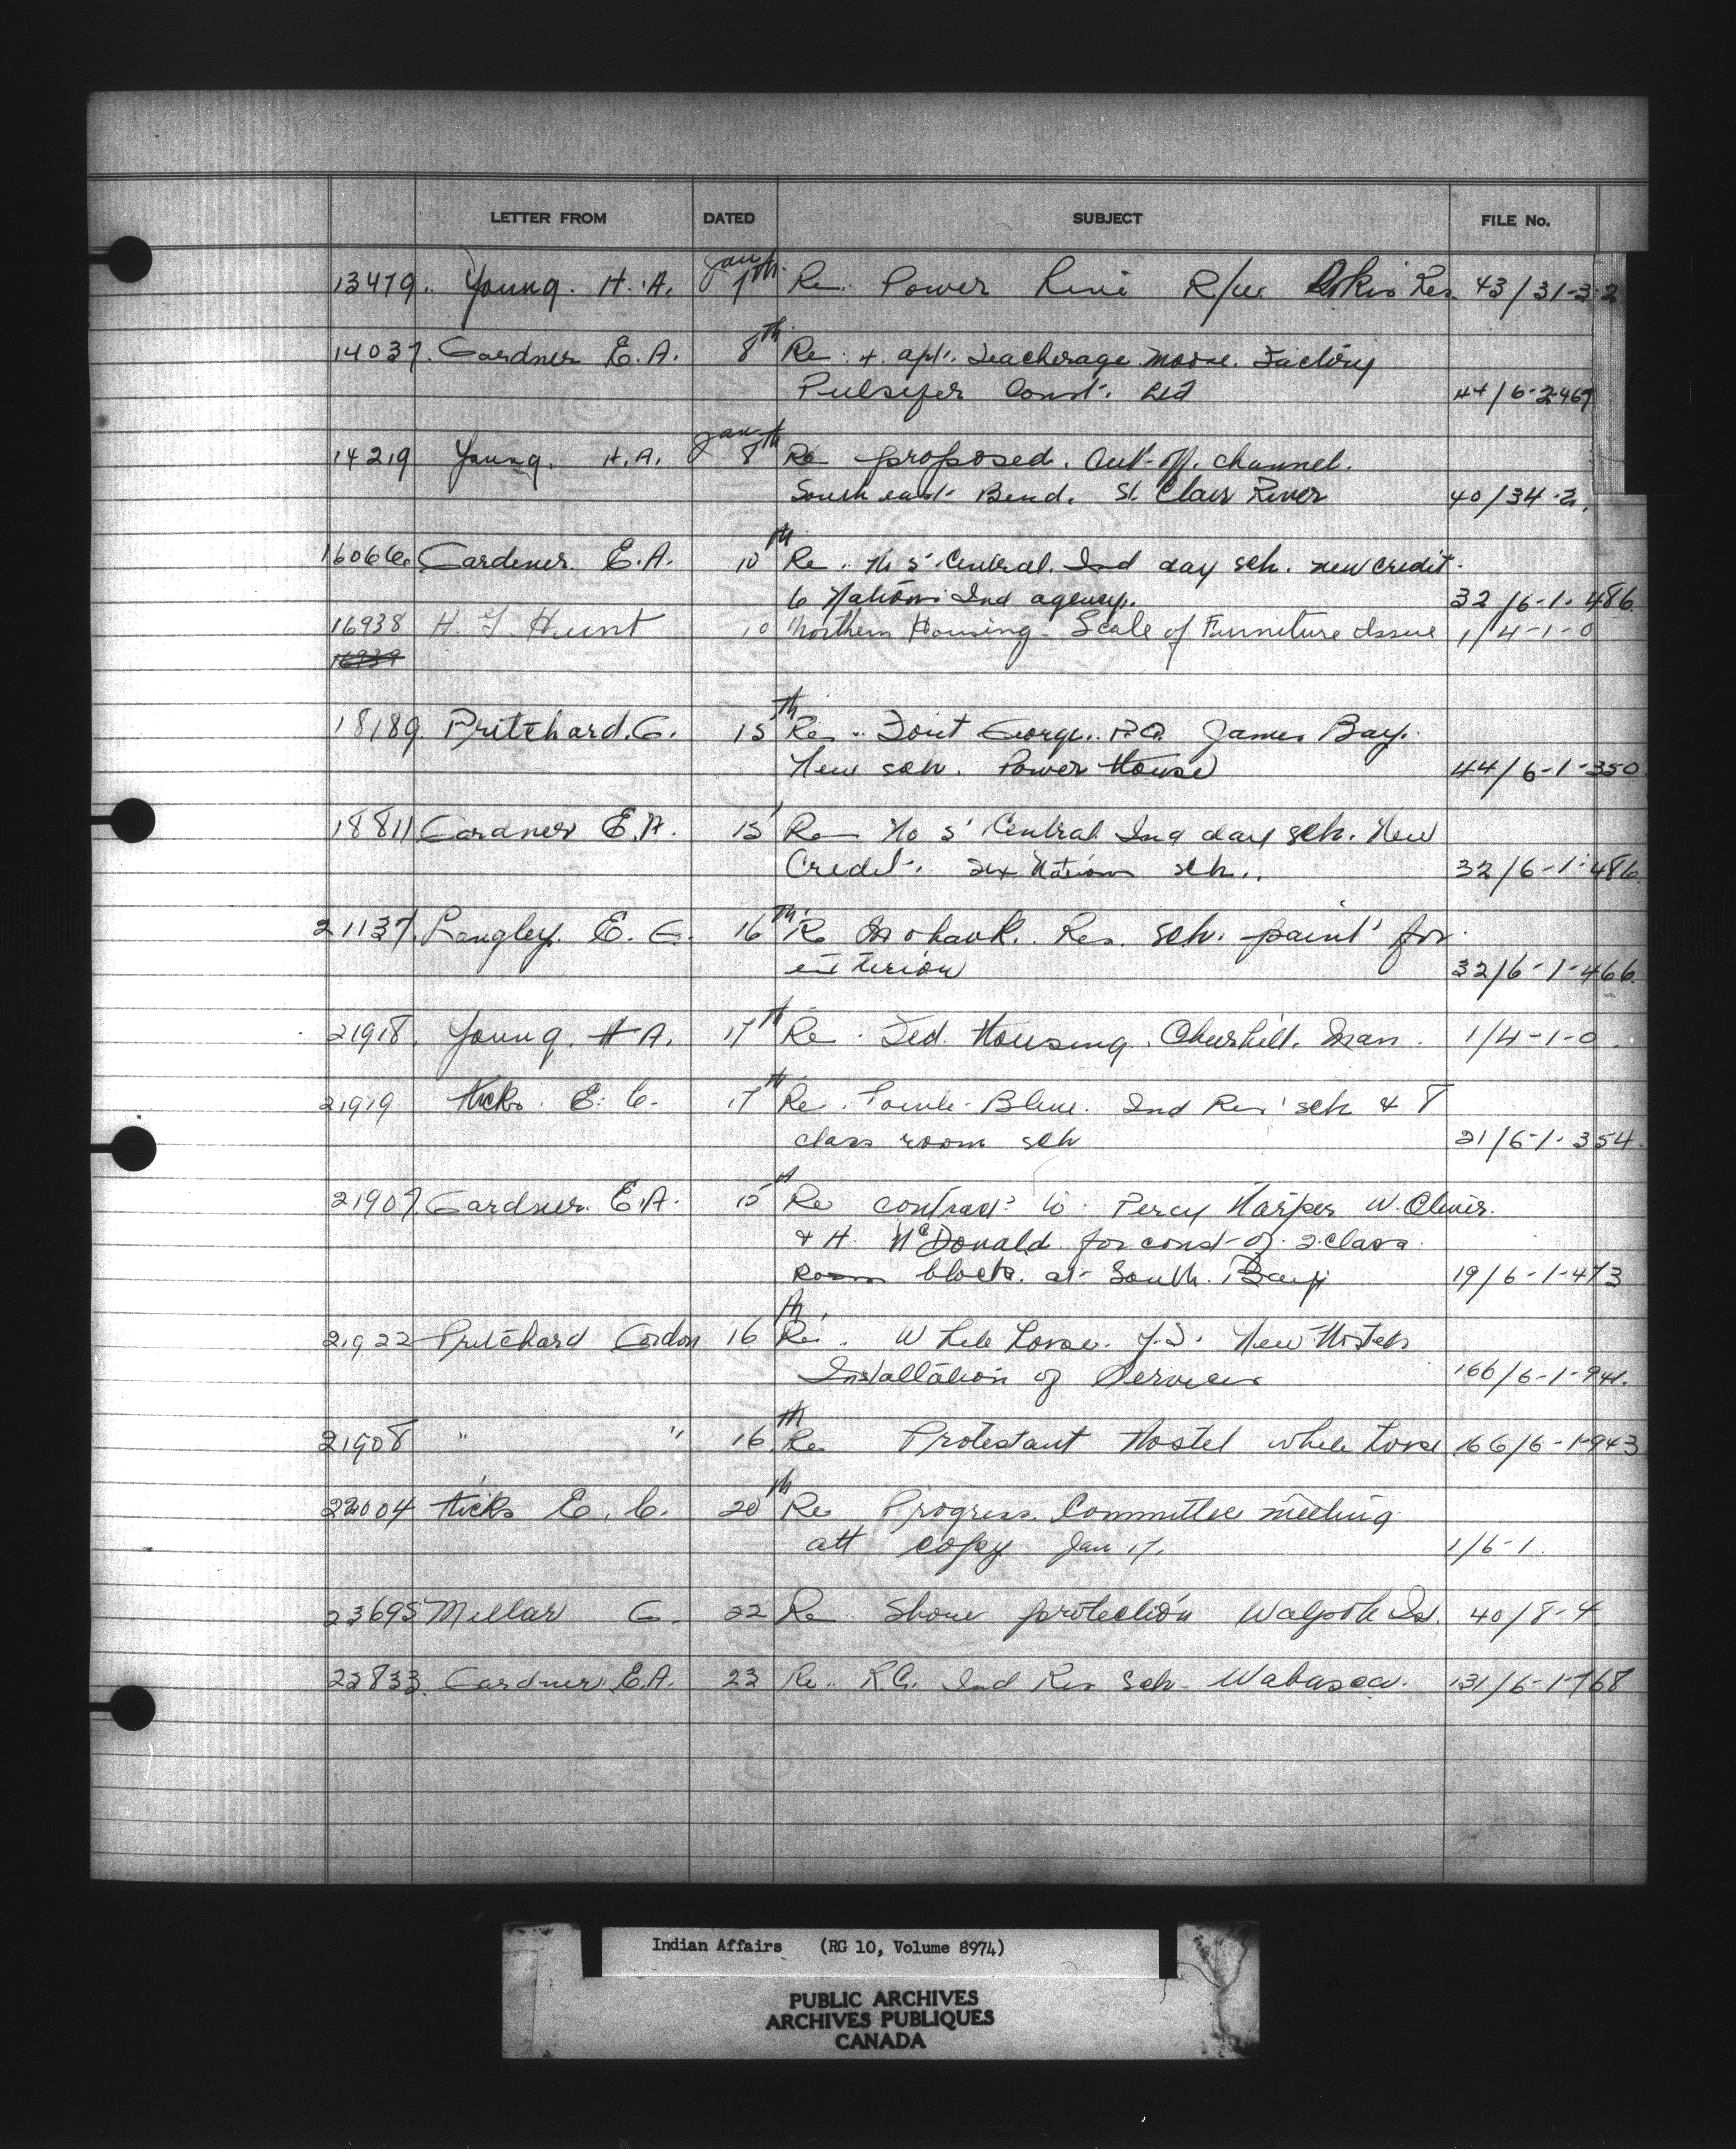 LETTER FROM DATED SUBJECT FILE No.
13479. Young. H. A. Jan 7th. Re. Power Line R/W. Res. 43/31-3-2
14037. Gardner E. A. 8th Re. 4. apt. Teacherage. Moose. Factory
Pulsifer Const. Ltd 44/6-2-467
14219 Young. H.A. Jan 8th Re proposed. Cut-off. channel.
South east Bend. St. Clair River 40/34-2.
16066 Gardener. E.A. 10th Re. No 5 Central. Ind day sch. new credit.
6 Nations Ind agency. 32/6-1-486.
16938 H. G. Hunt 10 Northern Housing - Scale of Furniture Issue 1/4-1-0
16939
18189. Pritchard. G. 15th Re. Fort George. P.Q. James Bay.
New sch. Power House 44/6-1-350.
18811 Gardner E.A. 15 Re No 5 Central Ind day sch. New
Credit. Six Nations sch.. 32/6-1-486.
21137. Langley. E. G. 16th Re Mohawk. Res. sch. paint for
exterior 32/6-1-466.
21918. Young. H A. 17th Re. Fed. Housing. Churchill. Man. 1/4-1-0.
21919 Hicks. E. C. 17th Re. Blue. Ind Res sch & 8
class room sch 21/6-1-354.
21907. Gardner. E.A. 15th Re contract to Percy Harper W. Oliver.
& H. McDonald for const of 2 class
room block. at South. Bay 19/6-1-473
21922 Pritchard Gordon 16th Re. White horse. Y.T. New Hostels
Installation of Services 166/6-1-941.
21908 " " 16th Re Protestant Hostel white horse 166/6-1-943
22004 Hicks E. C. 20th Re Progress. Committee meeting
att copy Jan 17. 1/6-1.
23695 Millar G. 22 Re. Shore protection Walpole Isl. 40/8-4
23833. Gardner E.A. 23 Re. R.C. Ind Res Sch Wabasca. 131/6-1-768
Indian Affairs (RG 10, Volume 8974)
PUBLIC ARCHIVES
ARCHIVES PUBLIQUES
CANADA